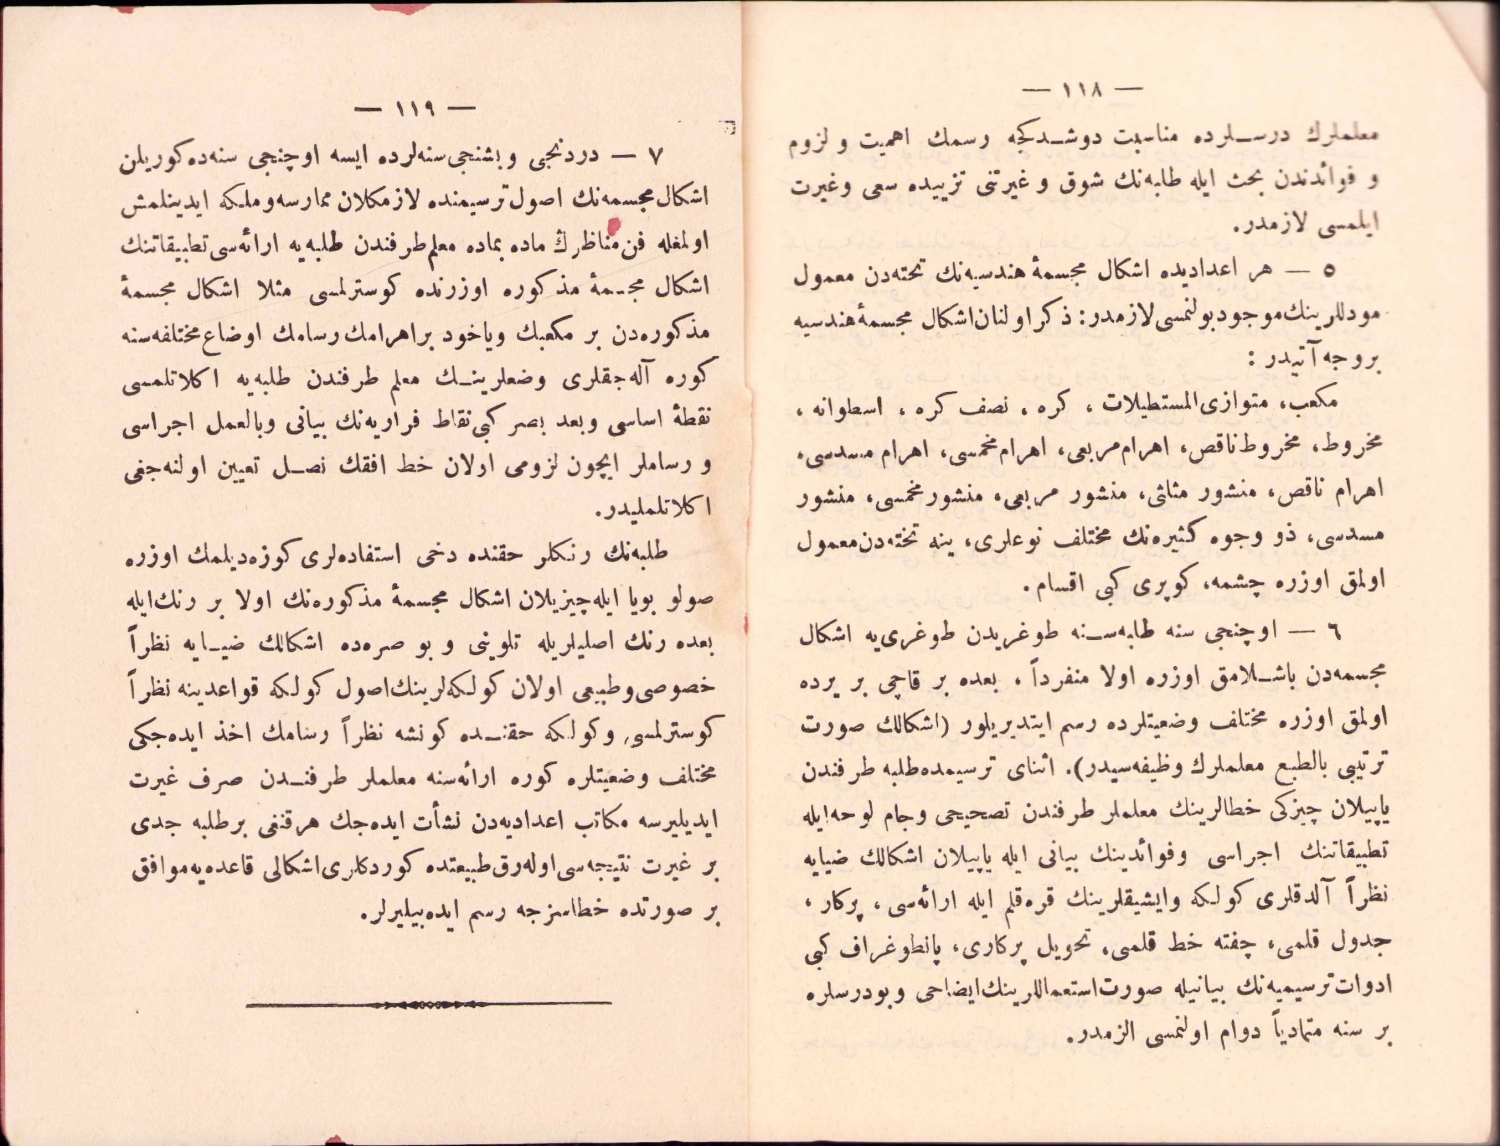 — ١١٨ —
معلملرك درســلرده مناسبت دوشـدكجه رسمك اهميت و لزوم
و فوائدندن بحث ايله طلبه‌نك شوق و غيرتنى تزييده سعى وغيرت
ايلمسى لازمدر.
٥ — هر اعداديده اشكال مجسمهٔ هندسيه‌نك تخته‌دن معمول
موددللرينك موجود بولنمسى لازمدر: ذكر اولنان اشكال مجسمهٔ هندسيه
بروجه آتيدر :
مكعب، متوازى‌المستطيلات ، كره ، نصف كره ، اسطوانه ،
مخروط، مخروط ناقص، اهرام مربعى، اهرام مخمسى، اهرام مسدسى،
اهرام ناقص، منشور مثلثى، منشور مربعى، منشور مخمسى، منشور
مسدسى، ذو وجوه كثيره‌نك مختلف نوعلرى، ينه تخته‌دن معمول
اولمق اوزره چشمه، كوپرى كبى اقسام.
٦ — اوچنجى سنه طلبه‌سـنه طوغريدن طوغرى‌يه اشكال
مجسمه‌دن باشـلامق اوزره اولا منفرداً ، بعده بر قاچى بر يرده
اولمق اوزره مختلف وضعيتلرده رسم ايتديريلور (اشكالك صورت
ترتيبى بالطبع معلملرك وظيفه‌سيدر). اثناى ترسيمده طلبه طرفندن
ياپيلان چيزكى خطالرينك معلملر طرفندن تصحيحى وجام لوحه ايله
تطبيقاتنك اجراسى وفوائدينك بيانى ايله ياپيلان اشكالك ضيايه
نظراً آلدقلرى كولكه وايشيقلرينك قره‌قلم ايله ارائه‌سى ، پركار ،
جدول قلمى، چفته خط قلمى، تحويل پركارى، پانطوغراف كبى
ادوات ترسيميه‌نك بيانيله صورت استعماللرينك ايضاحى وبودرسلره
بر سنه متمادياً دوام اولنمسى الزمدر.
— ١١٩ —
٧ — دردنجى وبشنجى سنه‌لرده ايسه اوچنجى سنه‌ده كوريلن
اشكال مجسمه‌نك اصول ترسيمنده لازمكلان ممارسه وملكه ايدينلمش
اولمغله فن مناظرك ماده بماده معلم طرفندن طلبه‌يه ارائه‌سى تطبيقاتنك
اشكال مجسمهٔ مذكوره اوزرنده كوسترلمسى مثلا اشكال مجسمهٔ
مذكوره‌دن بر مكعبك وياخود براهرامك رسامك اوضاع مختلفه‌سنه
كوره آله‌جقلرى وضعلرينـك معلم طرفندن طلبه‌يه اكلاتلمسى
نقطهٔ اساسى وبعد بصر كبى نقاط فراريه‌نك بيانى وبالعمل اجراسى
و رساملر ايچون لزومى اولان خط افقك نصـل تعيين اولنه‌جغى
اكلاتلمليدر.
طلبه‌نك رنكلر حقنده دخى استفاده‌لرى كوزه‌ديلمك اوزره
صولو بويا ايله چيزيلان اشكال مجسمهٔ مذكوره‌نك اولا بر رنك ايله
بعده رنك اصليلريله تلوينى و بو صره‌ده اشكالك ضيـايه نظراً
خصوصى وطبيعى اولان كولكه‌لرينك اصول كولكه قواعدينه نظراً
كوسترلمسى، وكولكه حقنـده كونشه نظراً رسامك اخذ ايده‌جكى
مختلف وضعيتلره كوره ارائه‌سنه معلملر طرفنـدن صرف غيرت
ايديليرسه مكاتب اعداديه‌دن نشأت ايده‌جك هرقنغى برطلبه جدى
بر غيرت نتيجه‌سى اوله‌رق طبيعتده كوردكلرى اشكالى قاعده‌يه موافق
بر صورتده خطاسزجه رسم ايده‌بيليرلر.